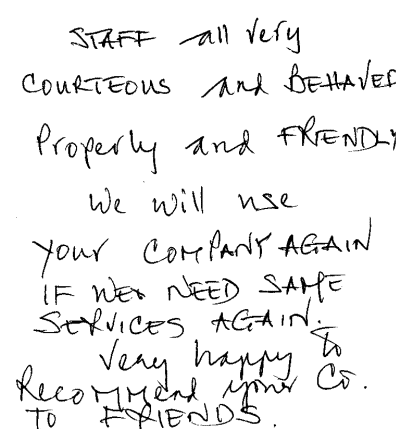 STAFF all very
COURTEOUS and BEHAVED
Properly and FRIENDLY
We will use
your COMPANY AGAIN
IF WE NEED SAME
SERVICES AGAIN.
Very happy to
Recommend your Co.
TO FRIENDS.